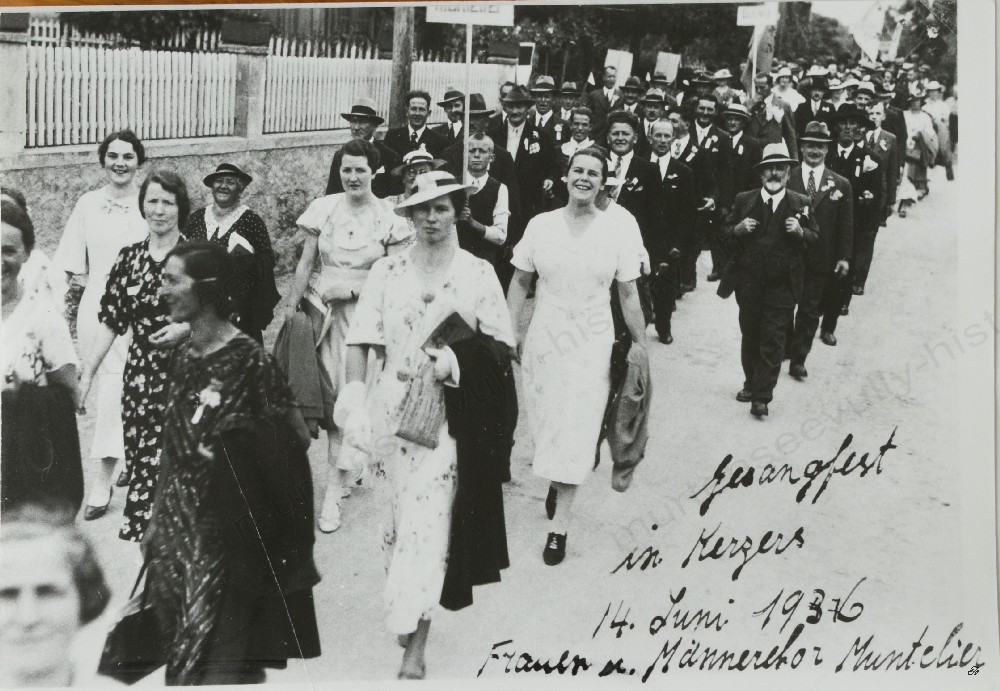 Muntelier
Gesangfest
in Kerzers
14. Juni 1936
Frauen u. Männerchor Muntelier